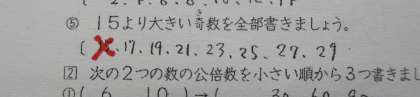 ⑤ 15より大きい奇数を全部書きましょう。
き
{ 17, 19, 21, 23, 25, 27, 29
② 次の2つの数の公倍数を小さい順から3つ書きまし
① ( 6 10 ) → ( 30 60 90